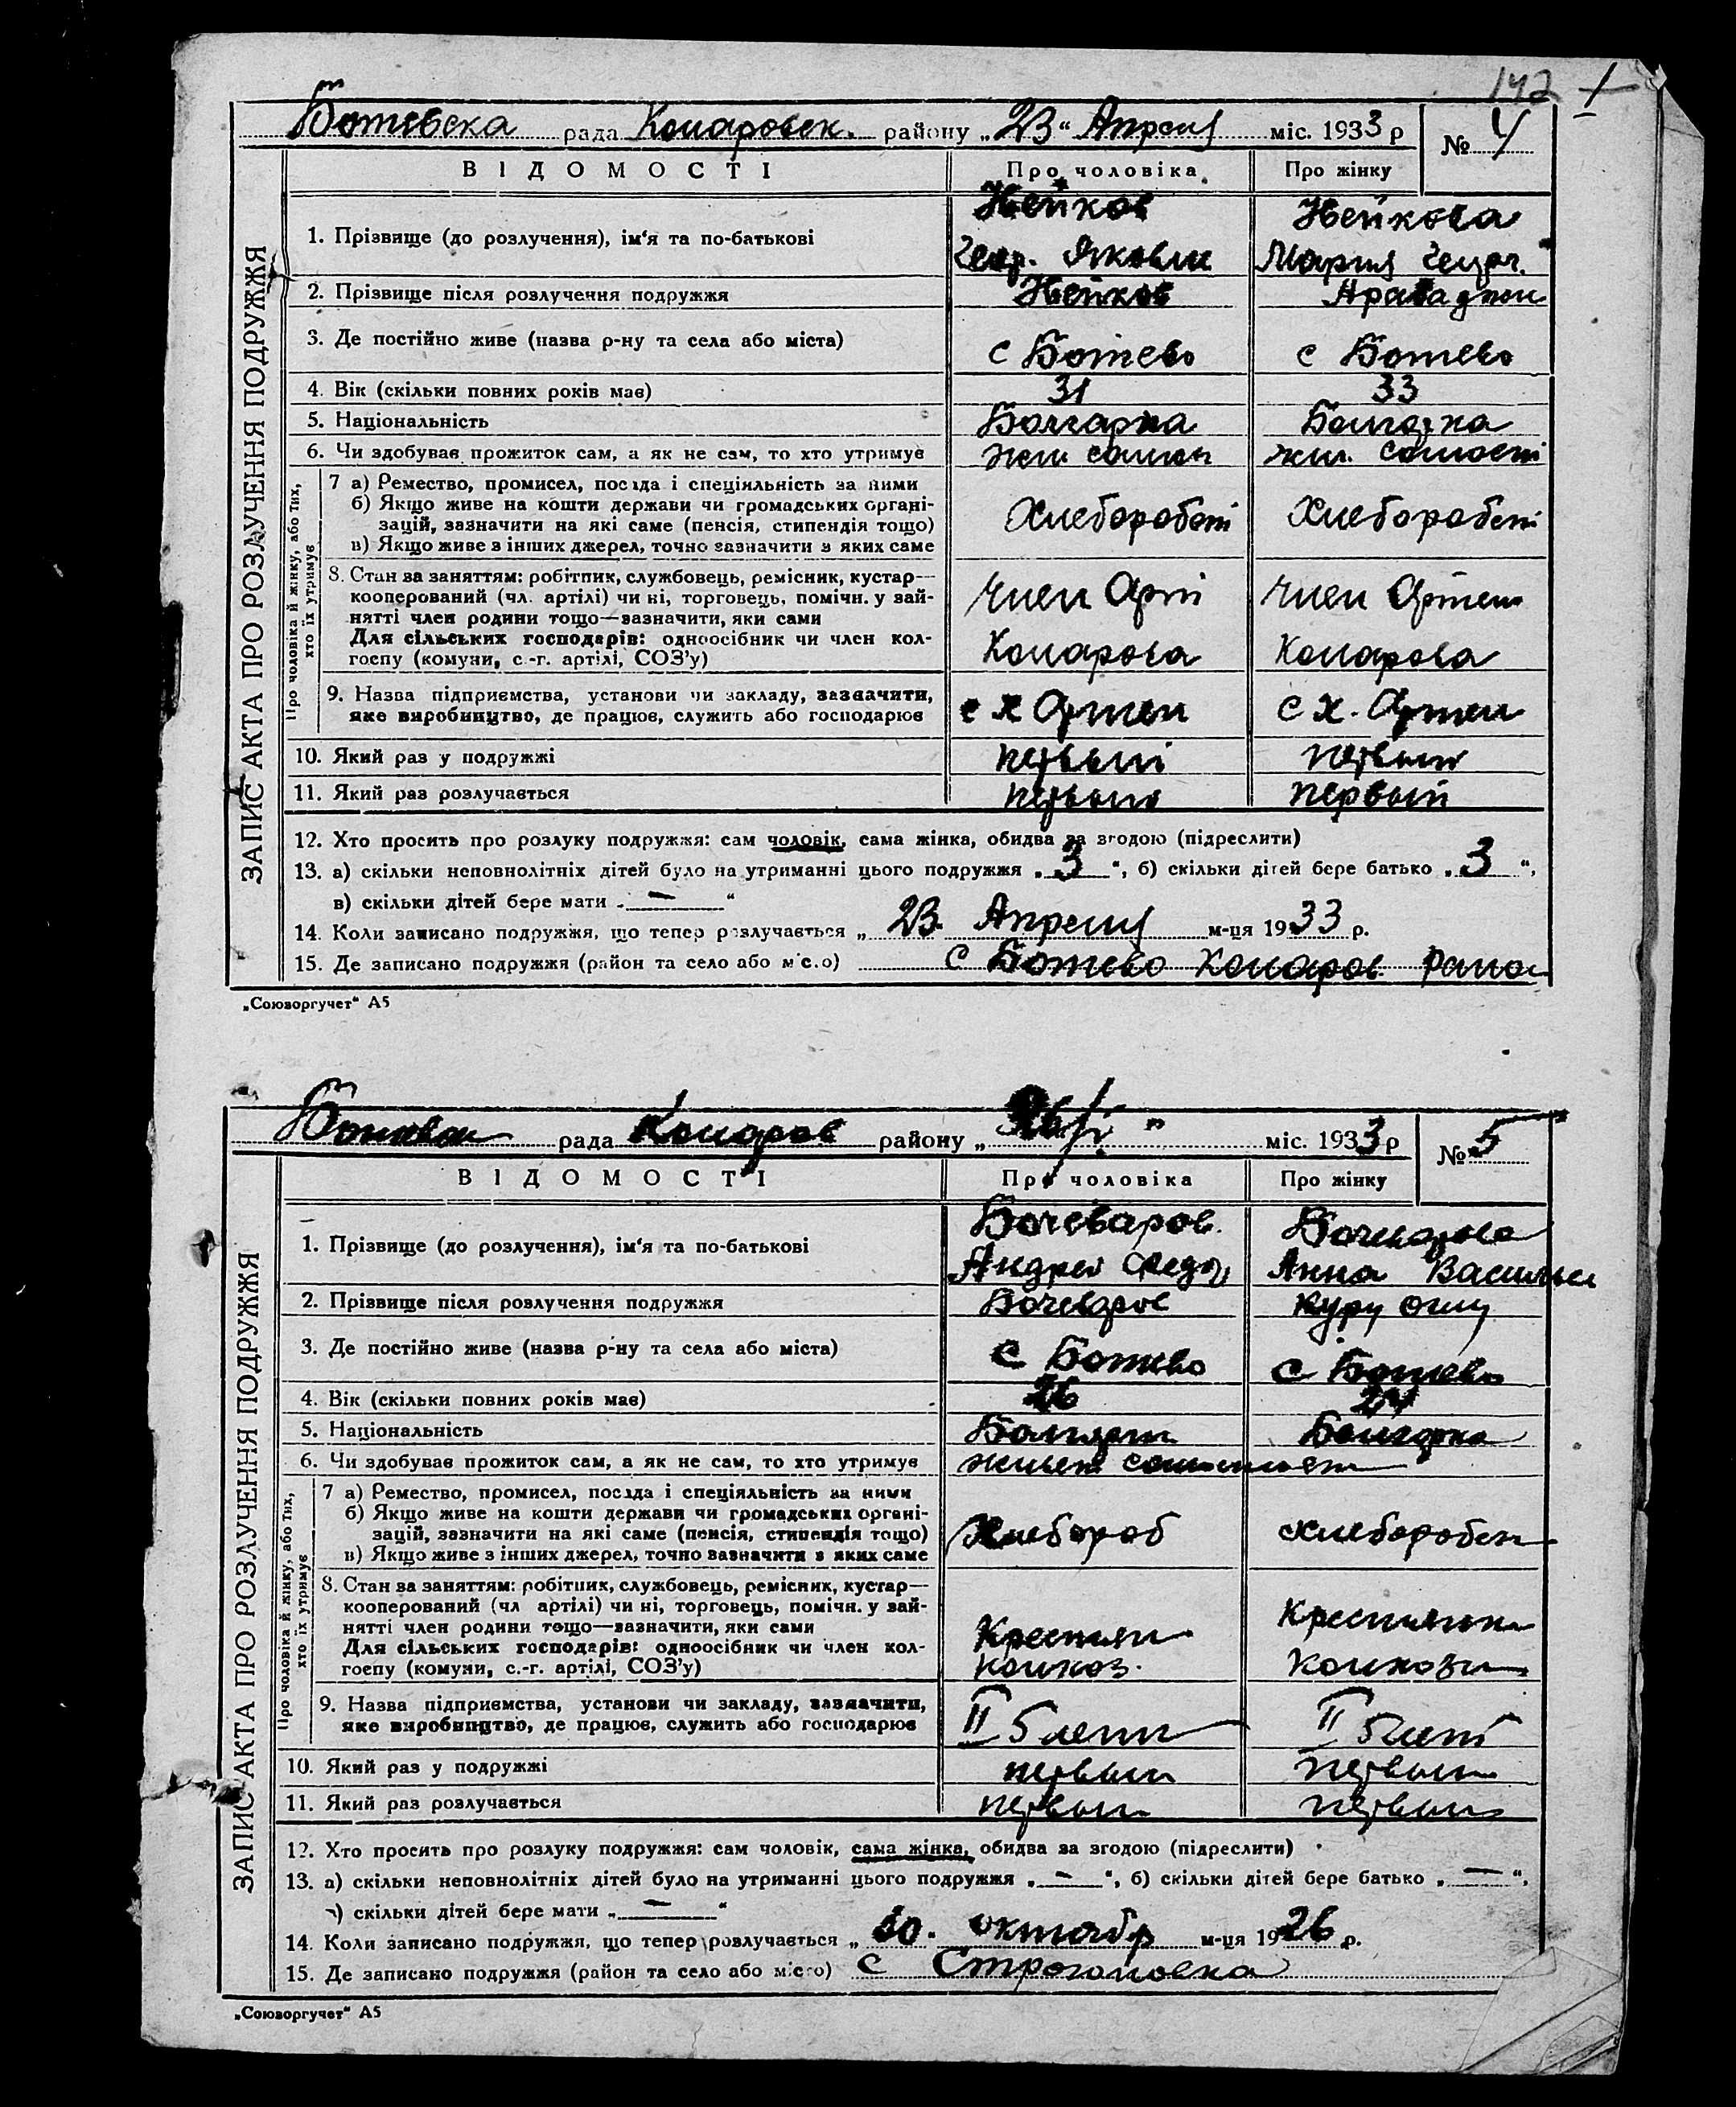 142 1
Ботевска рада Коларовск. району „23“ Апреля міс. 1933 р № 4
ВІДОМОСТІ Про чоловіка Про жінку
ЗАПИС АКТА ПРО РОЗЛУЧЕННЯ ПОДРУЖЖЯ
Нейков Нейкова
1. Прізвище (до розлучення), ім‘я та по-батькові
Яковли Мария Георг.
2. Прізвище після розлучення подружжя Нейков
3. Де постійно живе (назва р-ну та села або міста) с Ботево с Ботево
4. Вік (скільки повних років має) 31 33
5. Національність Болгарка Болгарка
6. Чи здобуває прожиток сам, а як не сам, то хто утримує
Про чоловіка й жінку, або тих, хто їх утримує
7 а) Ремество, промисел, посада і спеціяльність за ними
б) Якщо живе на кошти держави чи громадських органі-
зацій, зазначити на які саме (пенсія, стипендія тощо) Хлеборобст Хлеборобст
в) Якщо живе з інших джерел, точно зазначити з яких саме
8. Стан за заняттям: робітник, службовець, ремісник, кустар—
кооперований (чл. артілі) чи ні, торговець, помічн. у зай- член Арт член Артели
нятті член родини тощо—зазначити, яки сами
Для сільських господарів: одноосібник чи член кол-
госпу (комуни, с.-г. артілі, СОЗ’у) Коларова Коларова
9. Назва підприємства, установи чи закладу, зазначити,
яке виробництво, де працює, служить або господарює с х Артел с х. Артел
10. Який раз у подружжі первый первый
11. Який раз розлучається первый первый
12. Хто просить про розлуку подружжя: сам чоловік, сама жінка, обидва за згодою (підреслити)
13. а) скільки неповнолітніх дітей було на утриманні цього подружжя „3“, б) скільки дітей бере батько „3“,
в) скільки дітей бере мати „—“
14. Коли записано подружжя, що тепер розлучається „23 Апреля м-ця 1933 р.
15. Де записано подружжя (район та село або місто) с Ботево Коларов район
„Союзоргучет“ А5
рада Коларов району „ “ міс. 1933 р № 5
ВІДОМОСТІ Про чоловіка Про жінку
ЗАПИС АКТА ПРО РОЗЛУЧЕННЯ ПОДРУЖЖЯ
Бочеваров Бочеварова
1. Прізвище (до розлучення), ім‘я та по-батькові
Андрей Федор Анна Василье
2. Прізвище після розлучення подружжя Бочеваров
3. Де постійно живе (назва р-ну та села або міста) с Ботево с Ботево
4. Вік (скільки повних років має) 26 24
5. Національність Болгарин Болгарка
6. Чи здобуває прожиток сам, а як не сам, то хто утримує живет
Про чоловіка й жінку, або тих, хто їх утримує
7 а) Ремество, промисел, посада і спеціяльність за ними
б) Якщо живе на кошти держави чи громадських органі-
зацій, зазначити на які саме (пенсія, стипендія тощо) Хлебороб хлеборобст
в) Якщо живе з інших джерел, точно зазначити з яких саме
8. Стан за заняттям: робітник, службовець, ремісник, кустар—
кооперований (чл артілі) чи ні, торговець, помічн. у зай-
нятті член родини тощо—зазначити, яки сами Крестянка
Для сільських господарів: одноосібник чи член кол- Крестян
госпу (комуни, с.-г. артілі, СОЗ’у) колхоз.
9. Назва підприємства, установи чи закладу, зазначити,
яке виробництво, де працює, служить або господарює II 5 лет II 5 лет
10. Який раз у подружжі первый первый
11. Який раз розлучається первый первый
12. Хто просить про розлуку подружжя: сам чоловік, сама жінка, обидва за згодою (підреслити)
13. а) скільки неповнолітніх дітей було на утриманні цього подружжя „—“, б) скільки дітей бере батько „—“,
в) скільки дітей бере мати „—“
14. Коли записано подружжя, що тепер розлучається „ октябр м-ця 1926 р.
15. Де записано подружжя (район та село або місто) с Строгоновка
„Союзоргучет“ А5